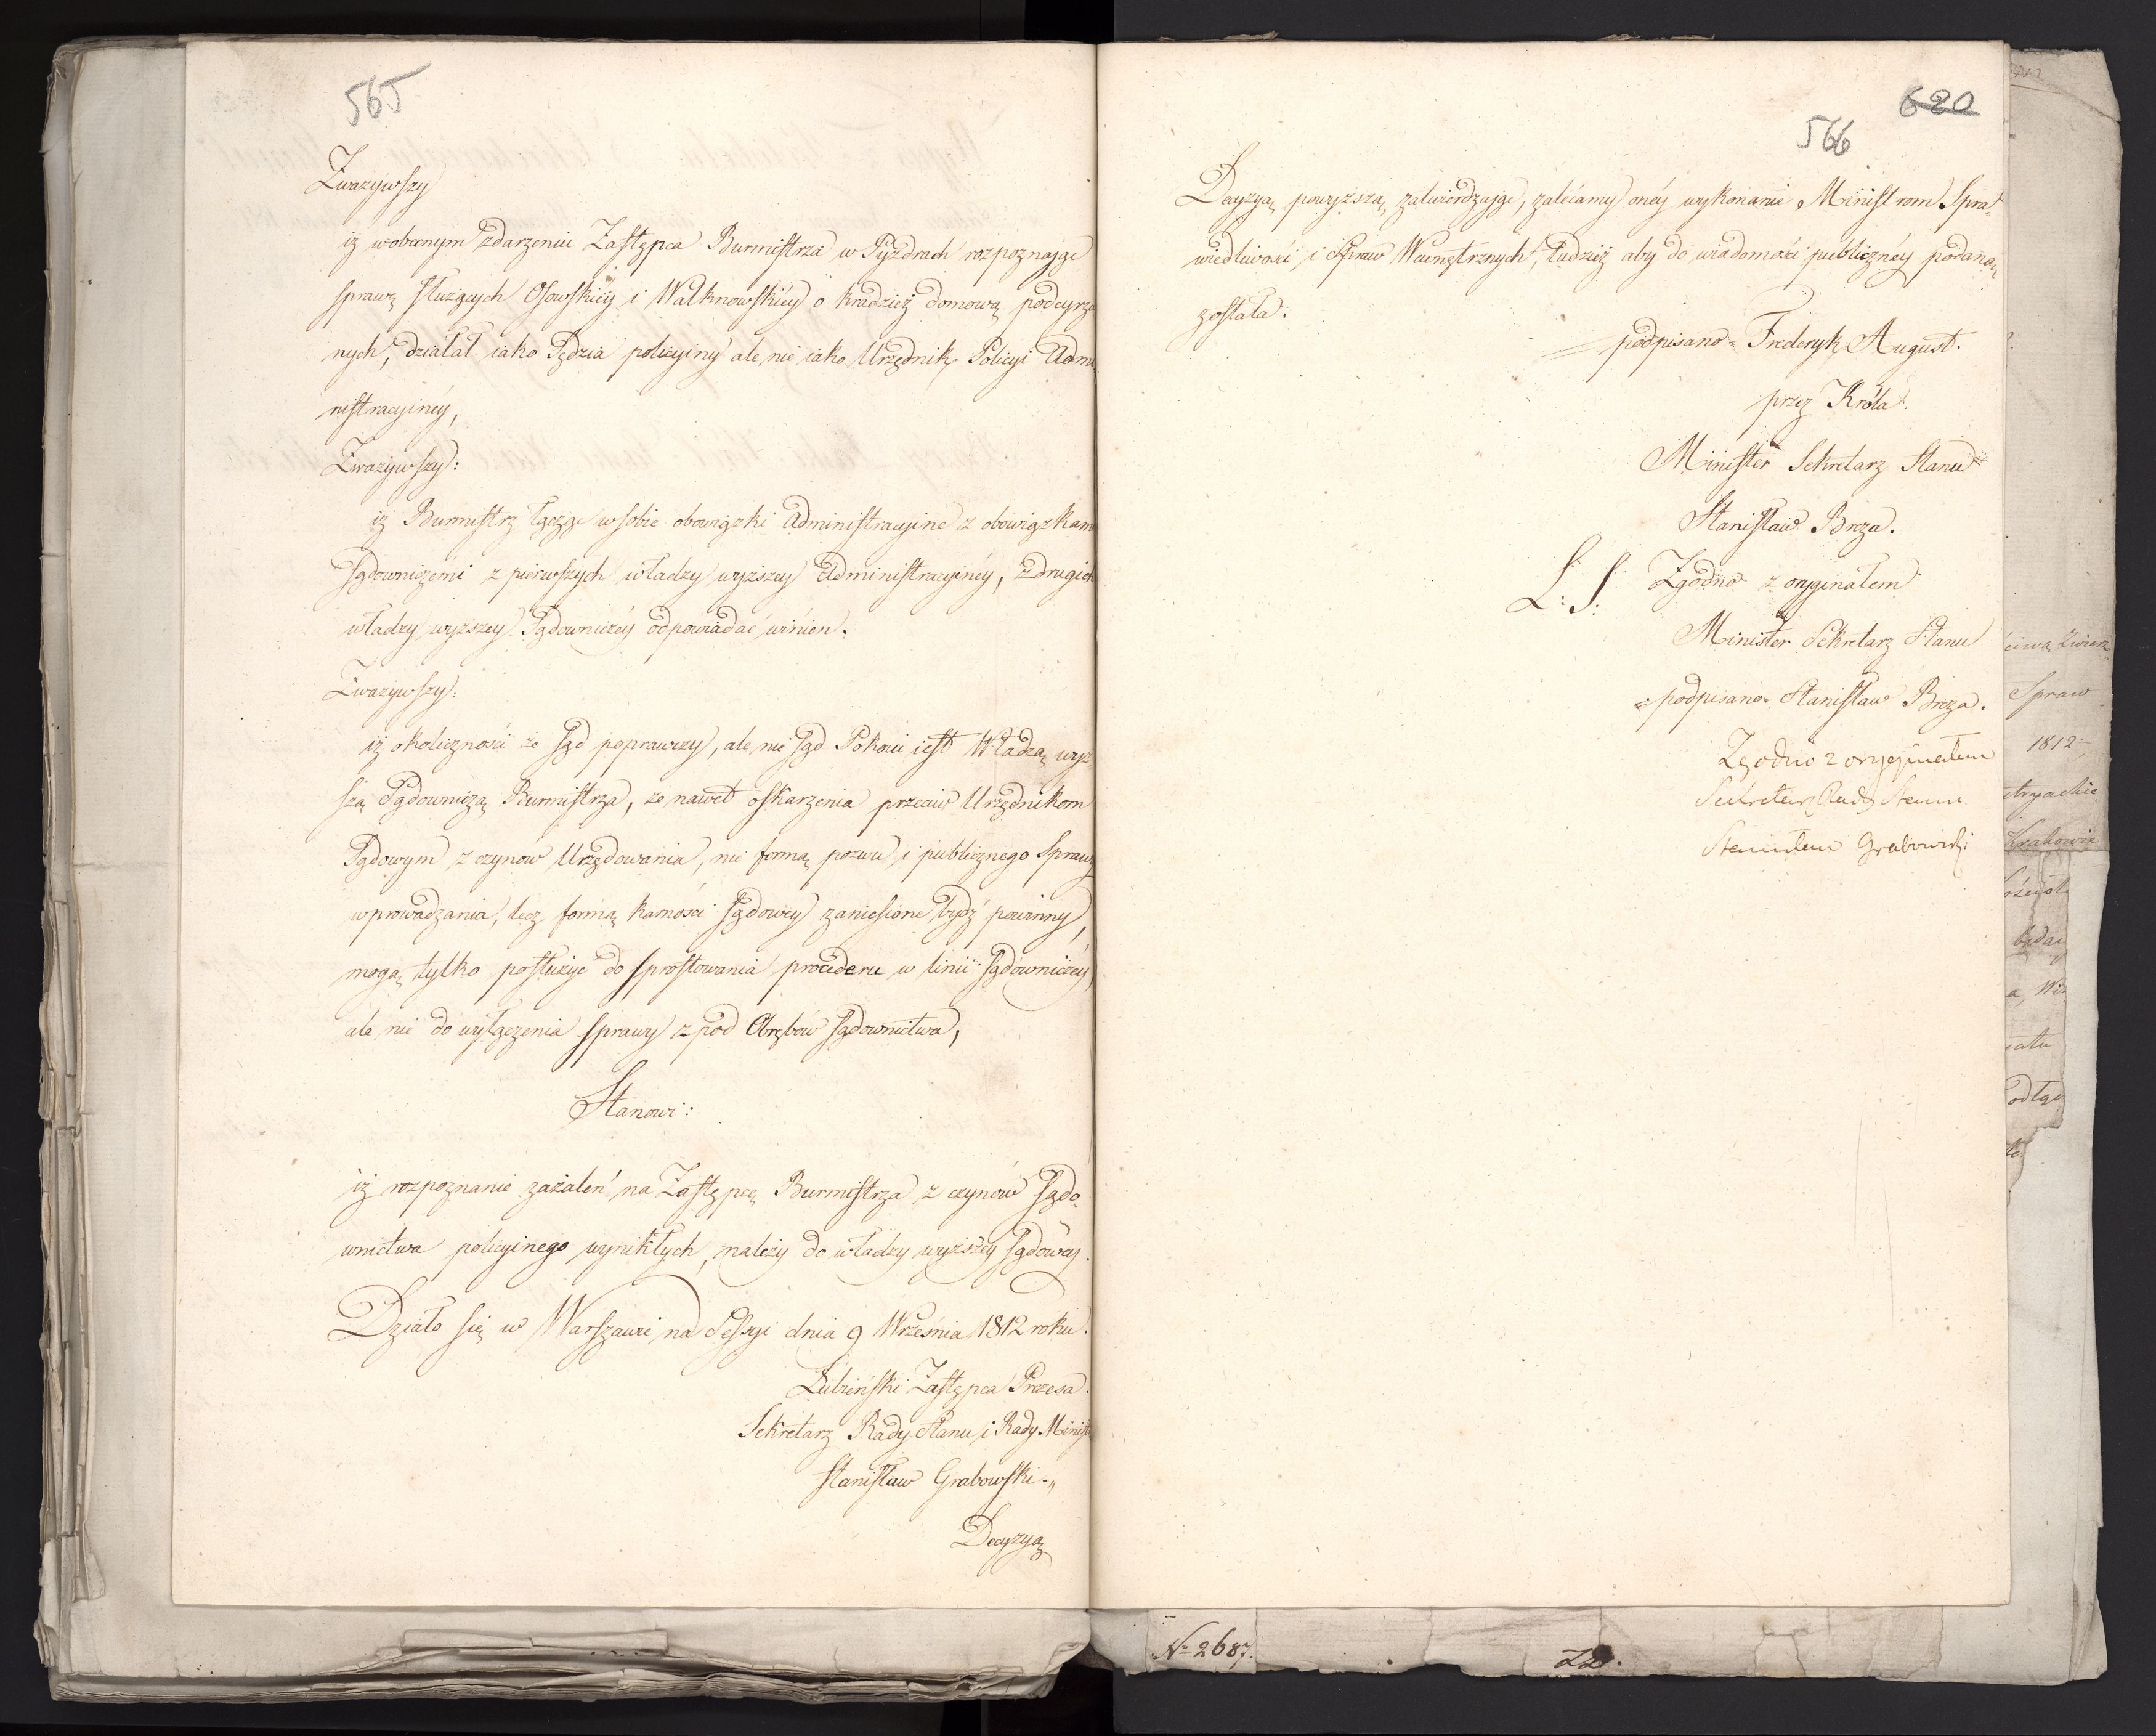 565
Zważywszy
iż w obecnym zdarzeniu Zastępca Burmistrza w Pyzdrach rozpoznaiąc
sprawę służących Osowskiey i Walknowskiey o kradzież domową podeyrza
nych, działał iako Sędzia policyiny ale nie iako Urzędnik Policyi Admi
nistracyinéy,
Zważywszy:
iż Burmistrz łącząc w sobie obowiązki Administracyine z obowiązkam
Sądowniczemi z pierwszych władzy wyższey Administracyinéy, z drugich
władzy wyższey Sądowniczéy odpowiadać winien.
Zważywszy:
iż okoliczności że Sąd poprawczy, ale nie Sąd Pokoiu iest Władzą wyż
szą Sądowniczą Burmistrza, że nawet oskarżenia przeciw Urzędnikom
Sądowym z czynów Urzędowania, nie formą pozwu i publicznego Sprawy
wprowadzania, lecz formą karności Sądowey zaniesione bydź powinny,
mogą tylko posłużyć do sprostowania procederu w linii Sądowniczéy,
ale nie do wyłączenia sprawy z pod Obrębów Sądownictwa,
Stanowi:
iż rozpoznanie zażaleń na Zastępcę Burmistrza z czynów Sądo„
wnictwa policyinego wynikłych, należy do władzy wyższéy Sądowéy.
Działo się w Warszawie na Sessyi dnia 9 Września 1812 roku.
Łubieński Zastępca Prezesa.
Sekretarz Rady Stanu i Rady Minist
Stanisław Grabowski.„
Decyzyą
620
566
Decyzyą powyższą zatwierdzaiąc, zalécamy onéy wykonanie Ministrom Spra„
wiedliwości i Spraw Wewnętrznych, tudzież aby do wiadomości publicznéy podaną
została:
podpisano= Frederyk August.
przez Króla.
Minister Sekretarz Stanu
Stanisław Breza.
L: S: Zgodno z oryginałem
Minister Sekretarz Stanu
=podpisano= Stanisław Breza.
Zgodno z oryginałem
Sekretarz Rady Stanu
Stanisław Grabowski
Spraw
1812
Krakowie
będąc
№ 2687.